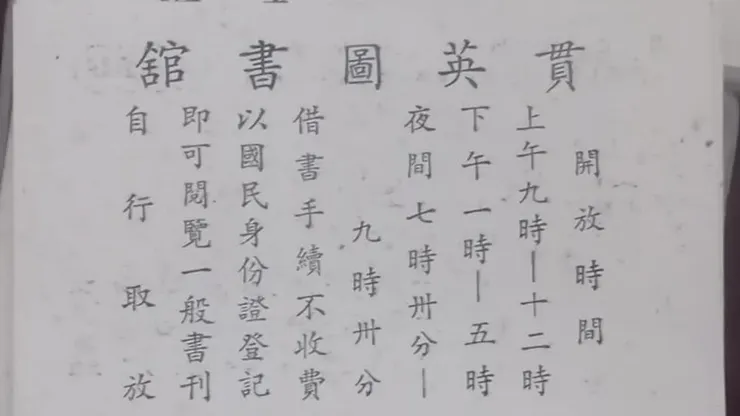 貫英圖書舘
開放時間
上午九時—十二時
下午一時—五時
夜間七時卅分—
九時卅分
借書手續不收費
以國民身份證登記
即可閱覽一般書刊
自行取放